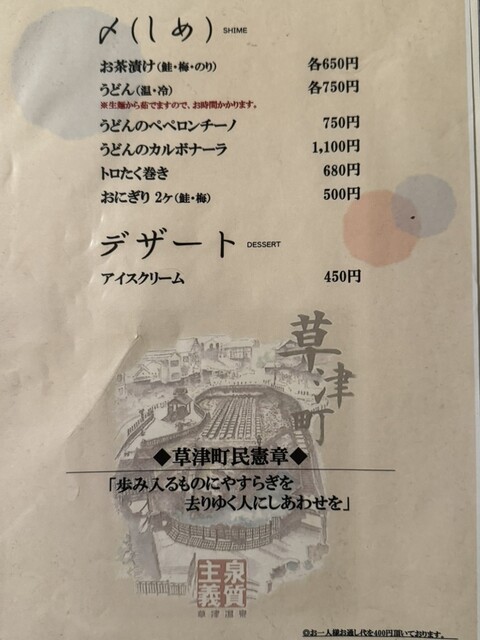 〆(しめ) SHIME
お茶漬け(鮭・梅・のり) 各650円
うどん(温・冷) 各750円
※生麺から茹でますので、お時間かかります。
うどんのペペロンチーノ 750円
うどんのカルボナーラ 1,100円
トロたく巻き 680円
おにぎり 2ケ(鮭・梅) 500円
デザート DESSERT
アイスクリーム 450円
草津町
◆草津町民憲章◆
「歩み入るものにやすらぎを
去りゆく人にしあわせを」
泉質
主義
草津温泉
◎お一人様お通し代を400円頂いております。